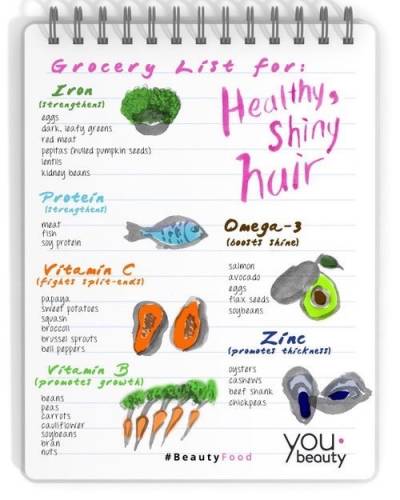 Grocery List for:
Healthy,
Shiny
hair
Iron
(strengthens)
eggs
dark, leafy greens
red meat
pepitas (hulled pumpkin seeds)
lentils
kidney beans
Protein
(strengthens)
meat
fish
soy protein
Omega-3
(boosts shine)
salmon
avocado
eggs
flax seeds
soybeans
Vitamin C
(fights split-ends)
papaya
sweet potatoes
squash
broccoli
brussel sprouts
bell peppers
Zinc
(promotes thickness)
oysters
cashews
beef shank
chickpeas
Vitamin B
(promotes growth)
beans
peas
carrots
cauliflower
soybeans
bran
nuts
#BeautyFood
you
beauty